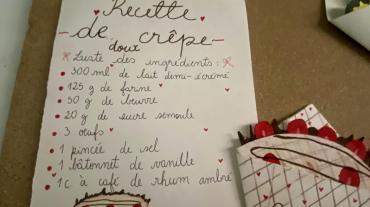 Recette
- de crêpe -
doux
Liste des ingrédients :
300 ml de lait demi-écrémé
125 g de farine
50 g de beurre
20 g de sucre semoule
3 œufs
1 pincée de sel
1 bâtonnet de vanille
1 c. à café de rhum ambré